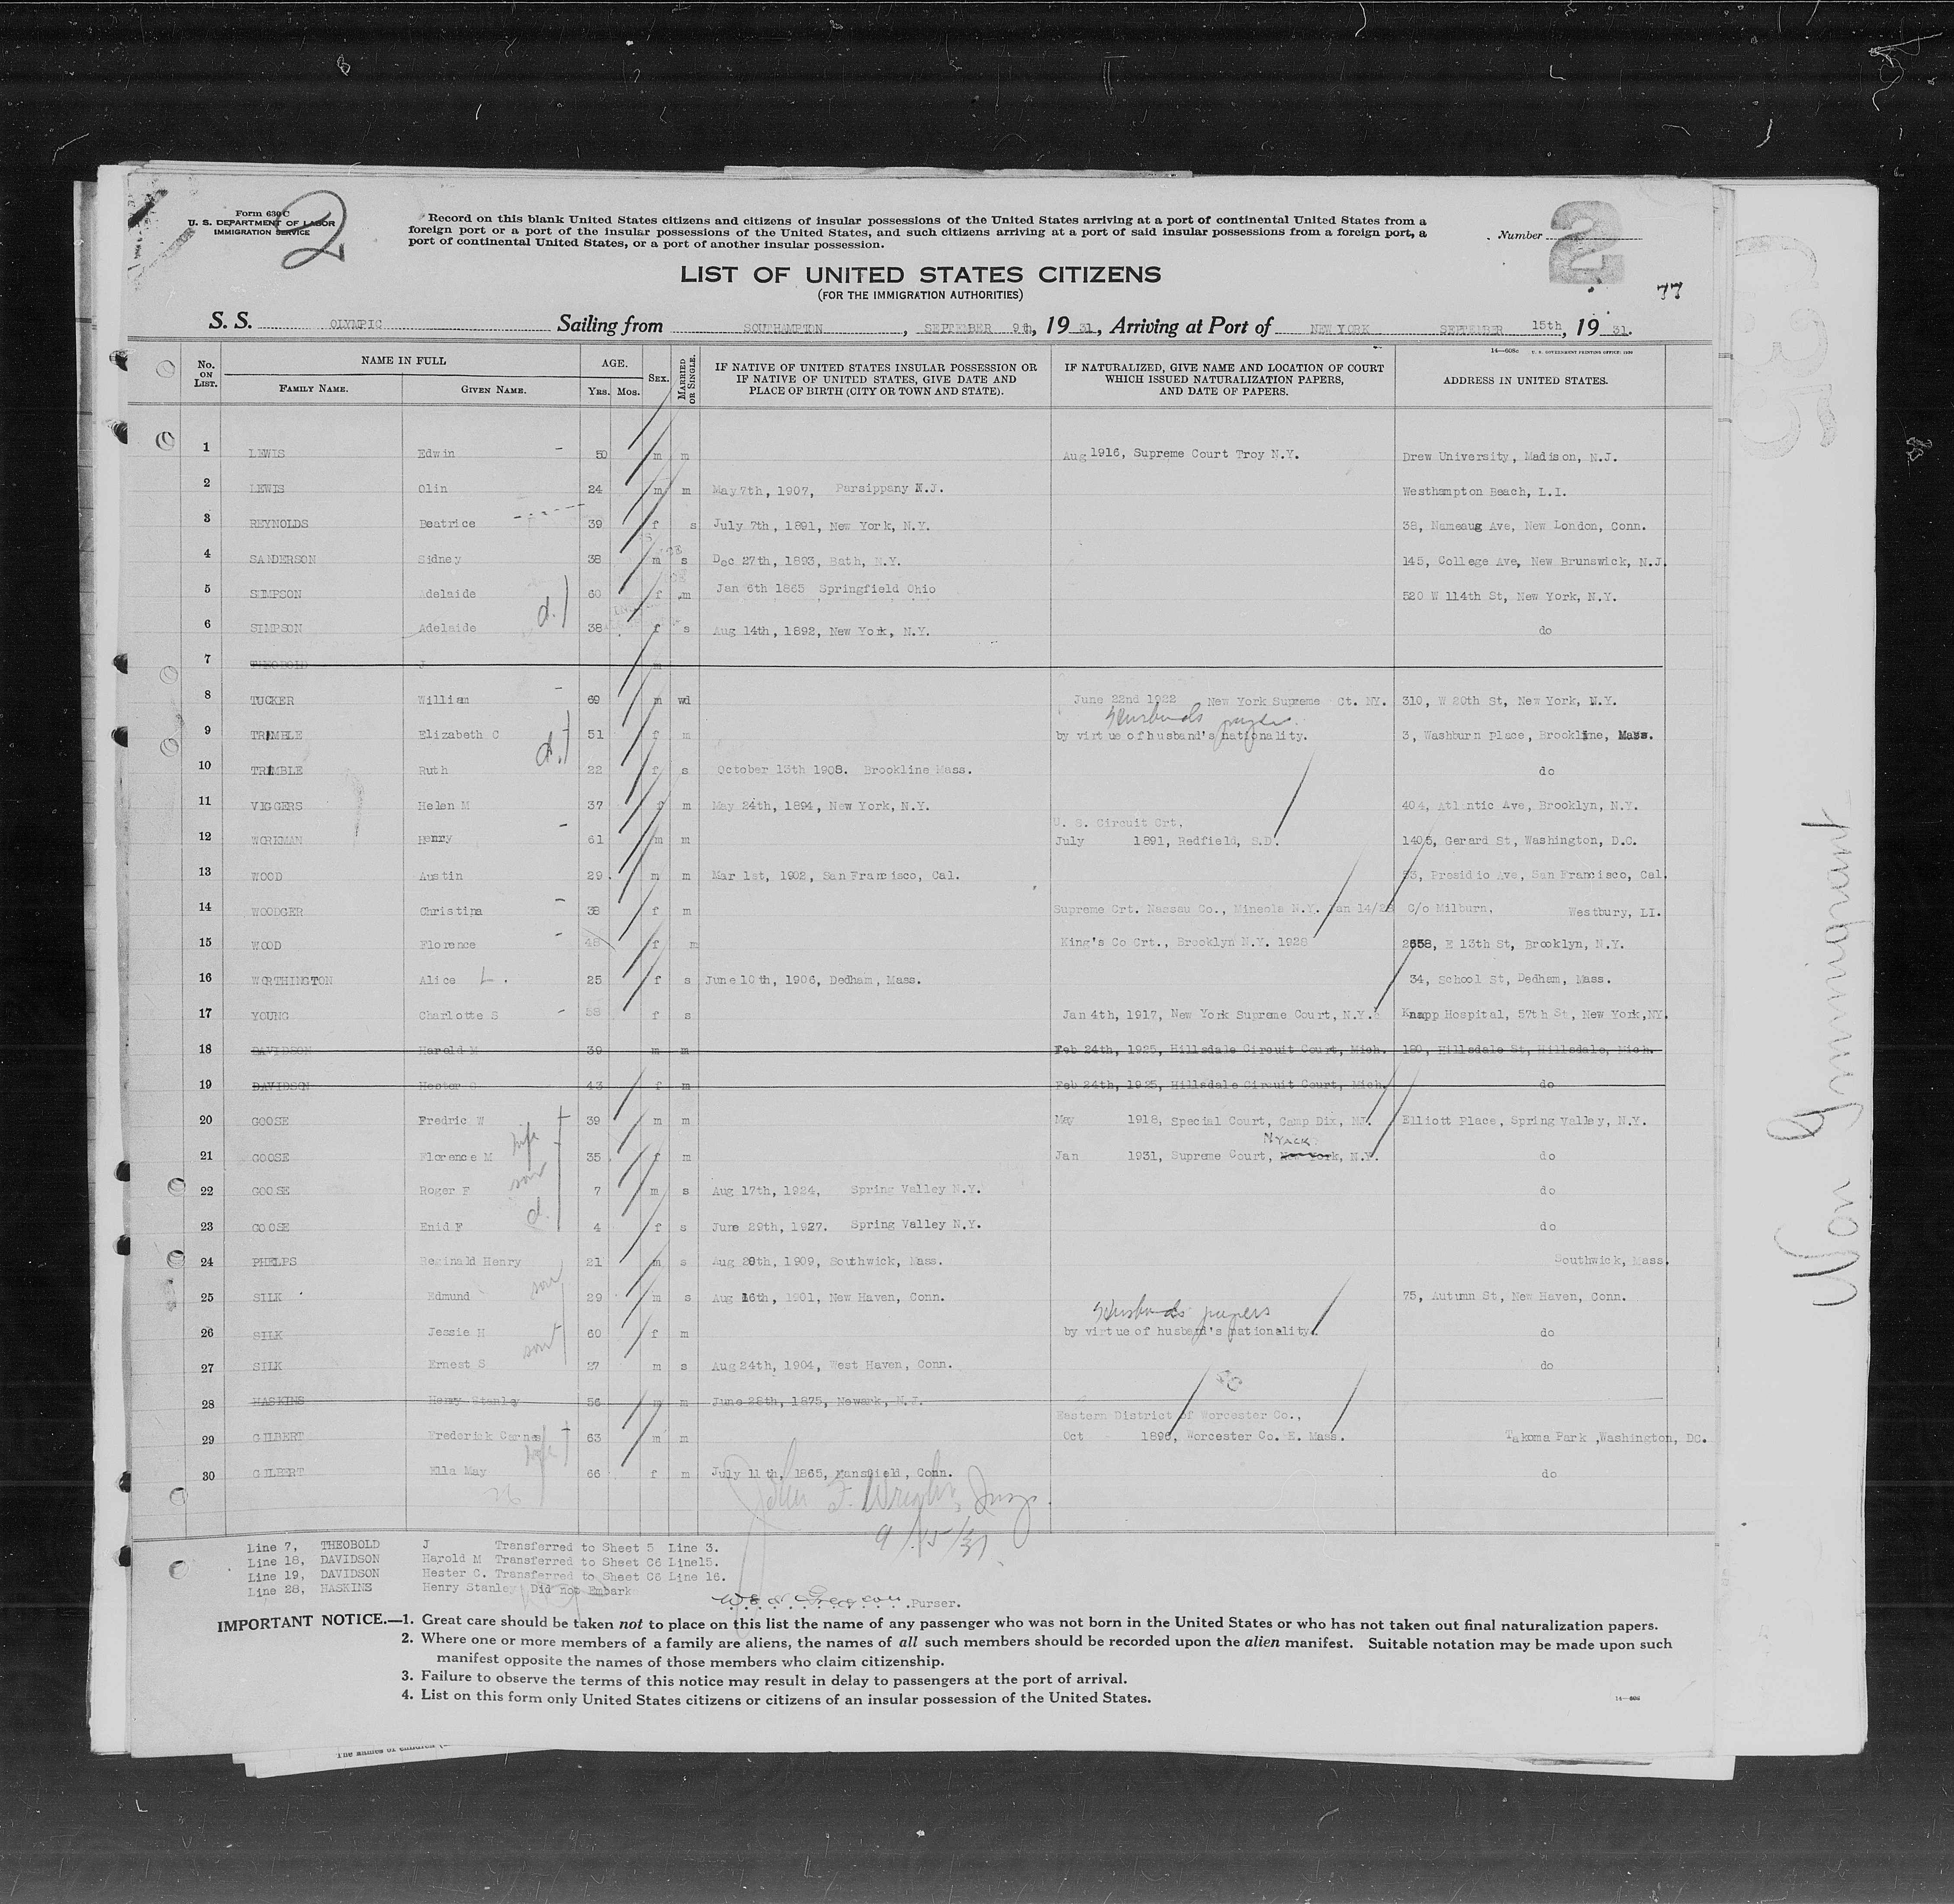 Form 630 C
U. S. DEPARTMENT OF LABOR
IMMIGRATION SERVICE
2
Record on this blank United States citizens and citizens of insular possessions of the United States arriving at a port of continental United States from a
foreign port or a port of the insular possessions of the United States, and such citizens arriving at a port of said insular possessions from a foreign port, a
port of continental United States, or a port of another insular possession.
Number
2
77
LIST OF UNITED STATES CITIZENS
(FOR THE IMMIGRATION AUTHORITIES)
S. S. OLYMPIC Sailing from SOUTHAMPTON, SEPTEMBER 9th, 19 31, Arriving at Port of NEW YORK SEPTEMBER 15th, 19 31.
14—608c U. S. GOVERNMENT PRINTING OFFICE: 1930
No. ON LIST. NAME IN FULL FAMILY NAME. GIVEN NAME. AGE. YRS. MOS. SEX. MARRIED OR SINGLE. IF NATIVE OF UNITED STATES INSULAR POSSESSION OR IF NATIVE OF UNITED STATES, GIVE DATE AND PLACE OF BIRTH (CITY OR TOWN AND STATE). IF NATURALIZED, GIVE NAME AND LOCATION OF COURT WHICH ISSUED NATURALIZATION PAPERS, AND DATE OF PAPERS. ADDRESS IN UNITED STATES.
1 LEWIS Edwin 50 m m Aug 1916, Supreme Court Troy N.Y. Drew University, Madison, N.J.
2 LEWIS Olin 24 m m May 7th, 1907, Parsippany N.J. Westhampton Beach, L.I.
3 REYNOLDS Beatrice 39 f s July 7th, 1891, New York, N.Y. 38, Nameaug Ave, New London, Conn.
4 SANDERSON Sidney 38 m s Dec 27th, 1893, Bath, N.Y. 145, College Ave, New Brunswick, N.J.
5 SIMPSON Adelaide 60 f m Jan 6th 1865 Springfield Ohio 520 W 114th St, New York, N.Y.
6 SIMPSON Adelaide d. 38 f s Aug 14th, 1892, New York, N.Y. do
7 THEOBOLD J m
8 TUCKER William 69 m wd June 22nd 1922 New York Supreme Ct. NY. 310, W 20th St, New York, N.Y.
Husbands papers.
9 TRIMBLE Elizabeth C 51 f m by virtue of husband's nationality. 3, Washburn Place, Brookline, Mass.
10 TRIMBLE Ruth d. 22 f s October 13th 1908. Brookline Mass. do
11 VIGGERS Helen M 37 f m May 24th, 1894, New York, N.Y. 404, Atlantic Ave, Brooklyn, N.Y.
U. S. Circuit Crt.
12 WORKMAN Henry 61 m m July 1891, Redfield, S.D. 1405, Gerard St, Washington, D.C.
13 WOOD Austin 29 m m Mar 1st, 1902, San Francisco, Cal. 53, Presidio Ave, San Francisco, Cal.
14 WOODGER Christina 38 f m Supreme Crt. Nassau Co., Mineola N.Y. Jan 14/28 C/o Milburn, Westbury, LI.
15 WOOD Florence 48 f m King's Co Crt., Brooklyn N.Y. 1928 2658, E 13th St, Brooklyn, N.Y.
16 WORTHINGTON Alice L. 25 f s June 10th, 1906, Dedham, Mass. 34, School St, Dedham, Mass.
17 YOUNG Charlotte S 58 f s Jan 4th, 1917, New York Supreme Court, N.Y. Knapp Hospital, 57th St, New York, NY.
18 DAVIDSON Harold M 39 m m Feb 24th, 1925, Hillsdale Circuit Court, Mich. 180, Hillsdale St, Hillsdale, Mich.
19 DAVIDSON Hester C 43 f m Feb 24th, 1925, Hillsdale Circuit Court, Mich. do
20 GOOSE Fredric W 39 m m May 1918, Special Court, Camp Dix, NJ. Elliott Place, Spring Valley, N.Y.
NYACK
21 GOOSE Florence M wife 35 f m Jan 1931, Supreme Court, New York, N.Y. do
22 GOOSE Roger F son 7 m s Aug 17th, 1924, Spring Valley N.Y. do
23 GOOSE Enid F d. 4 f s June 29th, 1927. Spring Valley N.Y. do
24 PHELPS Reginald Henry 21 m s Aug 20th, 1909, Southwick, Mass. Southwick, Mass.
25 SILK Edmund son 29 m s Aug 16th, 1901, New Haven, Conn. 75, Autumn St, New Haven, Conn.
Husbands papers
26 SILK Jessie H 60 f m by virtue of husband's nationality. do
27 SILK Ernest S son 27 m s Aug 24th, 1904, West Haven, Conn. do
28 HASKINS Henry Stanley 56 m m June 28th, 1875, Newark, N.J.
Eastern District of Worcester Co.,
29 GILBERT Frederick Carnes 63 m m Oct 1896, Worcester Co. E. Mass. Takoma Park, Washington, DC.
30 GILBERT Ella May wife 66 f m July 11th, 1865, Mansfield, Conn. do
John F. Wright, Insp.
9/15/31
Line 7, THEOBOLD J Transferred to Sheet 5 Line 3.
Line 18, DAVIDSON Harold M Transferred to Sheet C6 Line15.
Line 19, DAVIDSON Hester C. Transferred to Sheet C6 Line 16.
Line 28, HASKINS Henry Stanley Did not Embark
Purser.
IMPORTANT NOTICE.—1. Great care should be taken not to place on this list the name of any passenger who was not born in the United States or who has not taken out final naturalization papers.
2. Where one or more members of a family are aliens, the names of all such members should be recorded upon the alien manifest. Suitable notation may be made upon such
manifest opposite the names of those members who claim citizenship.
3. Failure to observe the terms of this notice may result in delay to passengers at the port of arrival.
4. List on this form only United States citizens or citizens of an insular possession of the United States.
14—608
Non Immigrant